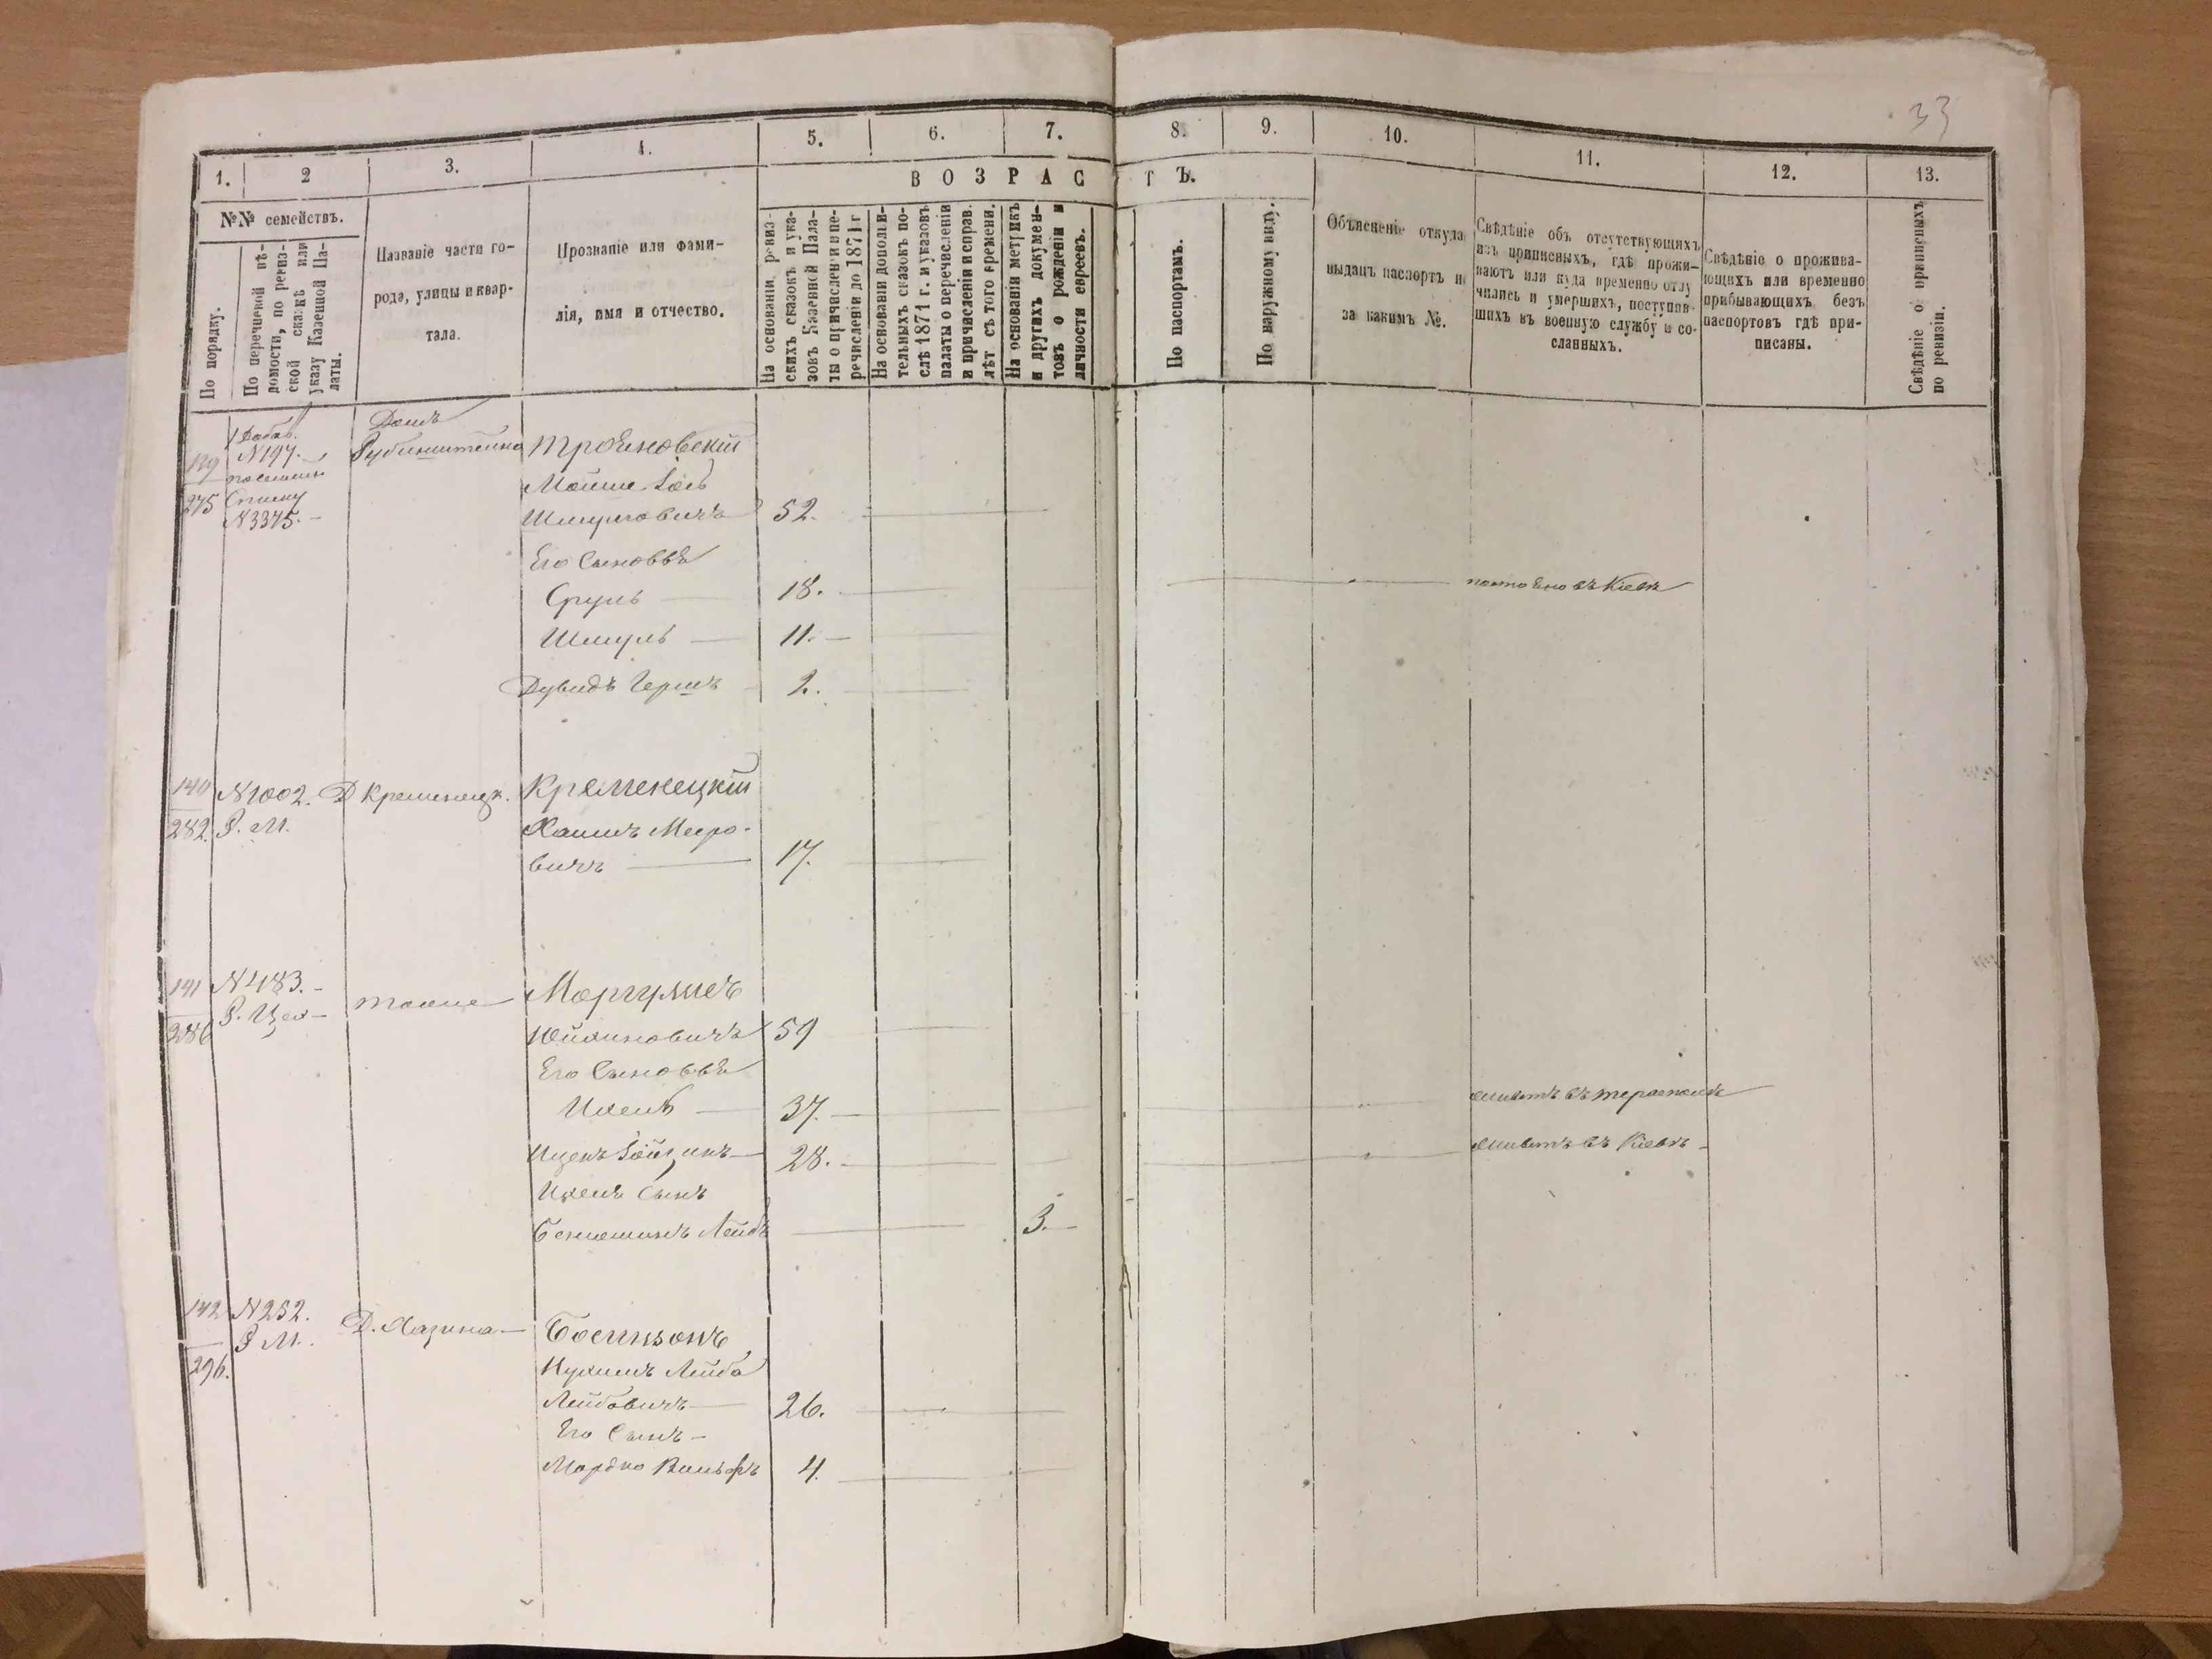 33
1. 2 3. 4. 5. 6. 7. 8. 9. 10. 11. 12. 13.
ВОЗРАСТЪ.
№№ семействъ.
По порядку.
По перечневой вѣ-
домости, по ревиз-
ской сказкѣ или
указу Казенной Па-
латы.
Названіе части го-
рода, улицы и квар-
тала.
Прозваніе или фами-
лія, имя и отчество.
На основаніи ревиз-
скихъ сказокъ и ука-
зовъ Казенной Пала-
ты о причисленіи и пе-
речисленіи до 1871 г
На основаніи дополни-
тельныхъ сказокъ по-
слѣ 1871 г. и указовъ
палаты о перечисленіи
и причисленіи и справ.
лѣт съ того времени.
На основаніи метрикъ
и другихъ докумен-
товъ о рожденіи и
личности евреевъ.
По паспортамъ.
По наружному виду.
Объясненіе откуда
выданъ паспортъ и
за какимъ №.
Свѣдѣніе объ отсутствующихъ
изъ приписныхъ, гдѣ прожи-
ваютъ или куда временно отлу
чились и умершихъ, поступив-
шихъ въ военную службу и со-
сланныхъ.
Свѣдѣніе о прожива-
ющихъ или временно
прибывающихъ безъ
паспортовъ гдѣ при-
писаны.
Свѣдѣніе о приписныхъ
по ревизіи.
139
275
Добав.
№197.
Списку
№3375.
Домъ
Рубинштейна
Трояновскій
Мошие Іось
Шмулговичъ 52.
Его Сыновья
Сруль 18. постояно въ Кіевѣ
Шмуль 11.
Дувидъ Гершъ 2.
140
282.
№1002.
Р. М.
Д Кременецк.
Кременецкій
Хаимъ Меро-
вичъ 17.
141
286
№483.
Р.
тоже
Моргулисъ
59
Его Сыновья
37. живетъ въ Тирасполѣ
Ицекъ 28. живетъ въ Кіевѣ
Сынъ
Бениоминъ Лейбъ 3.
142
296.
№252.
Р М.
Д. Хазина
Нухимъ Лейба
Лейбовичъ 26.
Его Сынъ
Мордко Вольфъ 4.